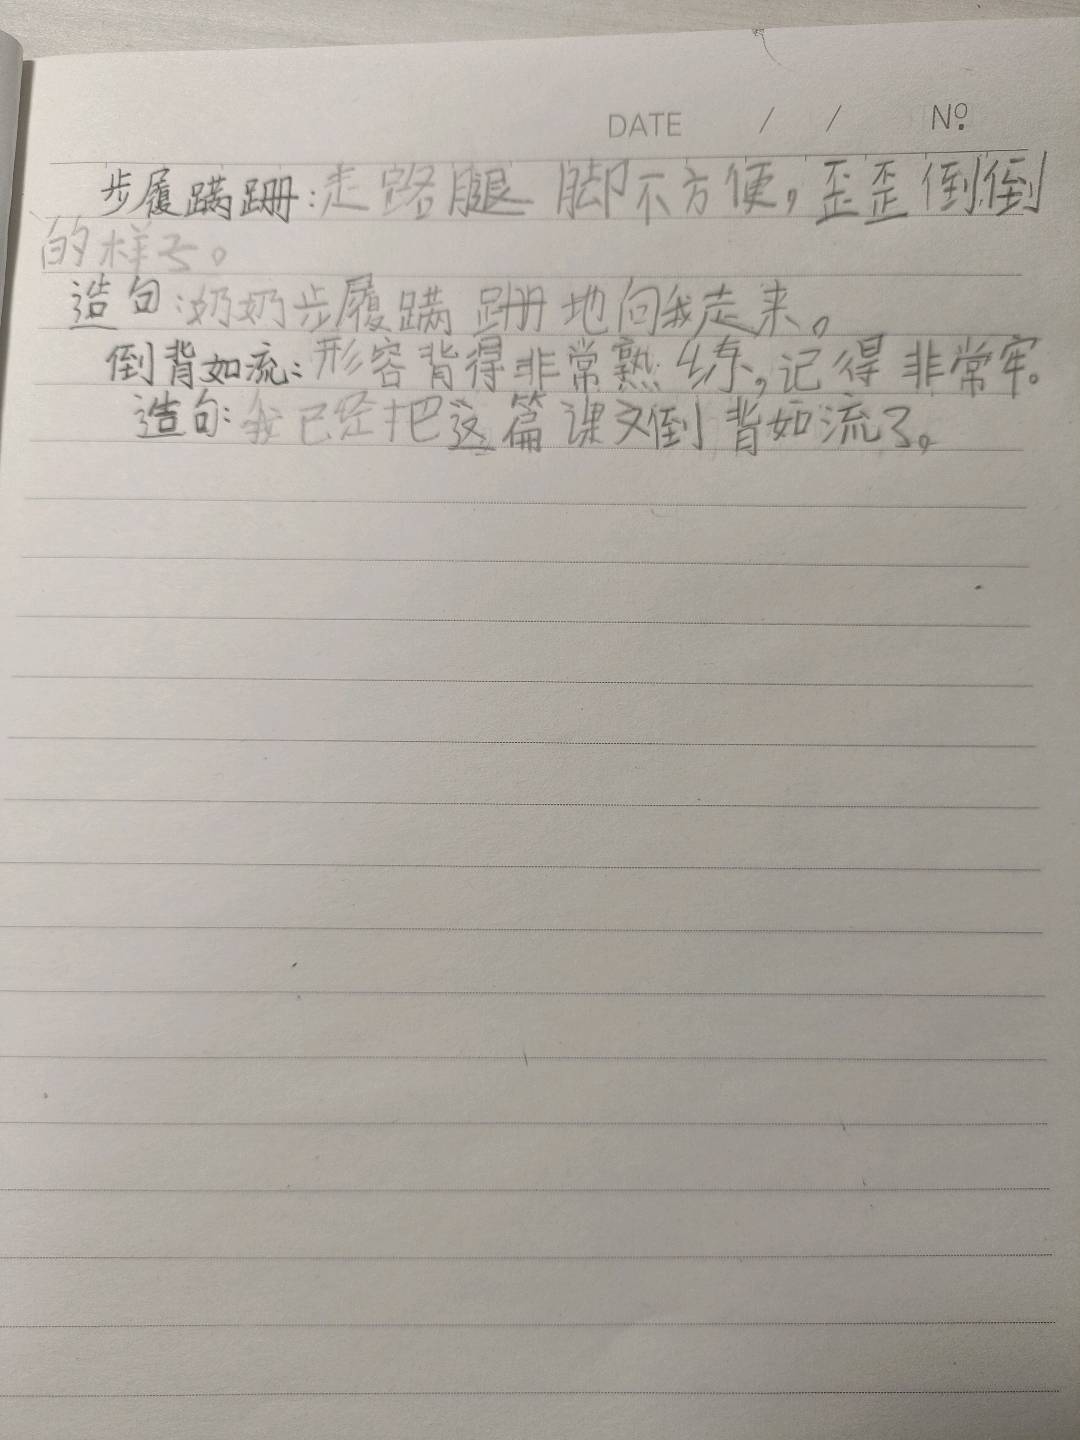 DATE / / Nº
步履蹒跚:走路腿脚不方便,歪歪倒倒
的样子。
造句:奶奶步履蹒跚地向我走来。
倒背如流:形容背得非常熟练,记得非常牢。
造句:我已经把这篇课文倒背如流了。